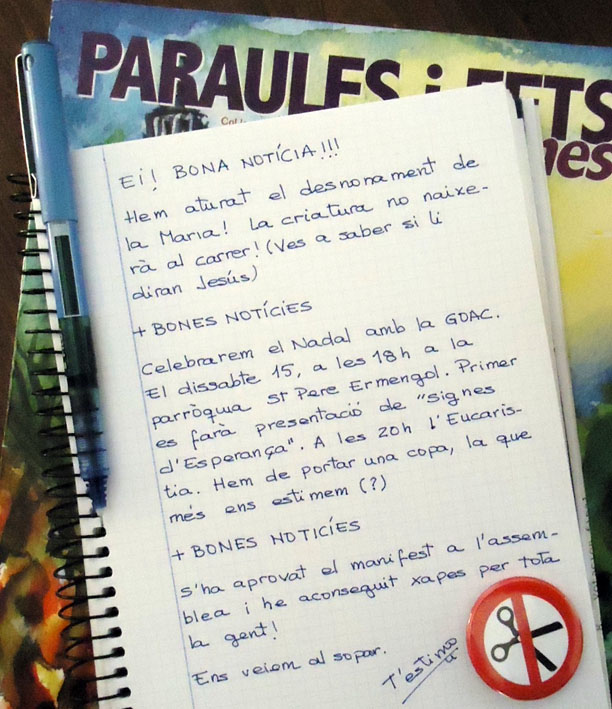 PARAULES i FETS
Ei! BONA NOTÍCIA!!!
Hem aturat el desnonament de
la Maria! La criatura no naixe-
rà al carrer! (Ves a saber si li
diran Jesús)
+ BONES NOTÍCIES
Celebrarem el Nadal amb la GOAC.
El dissabte 15, a les 18h a la
parròquia st Pere Ermengol. Primer
es farà presentació de "Signes
d'Esperança". A les 20h l'Eucaris-
tia. Hem de portar una copa, la que
més ens estimem (?)
+ BONES NOTICÍES
S'ha aprovat el manifest a l'assem-
blea i he aconseguit xapes per tota
la gent!
Ens veiem al sopar.
T'estimo